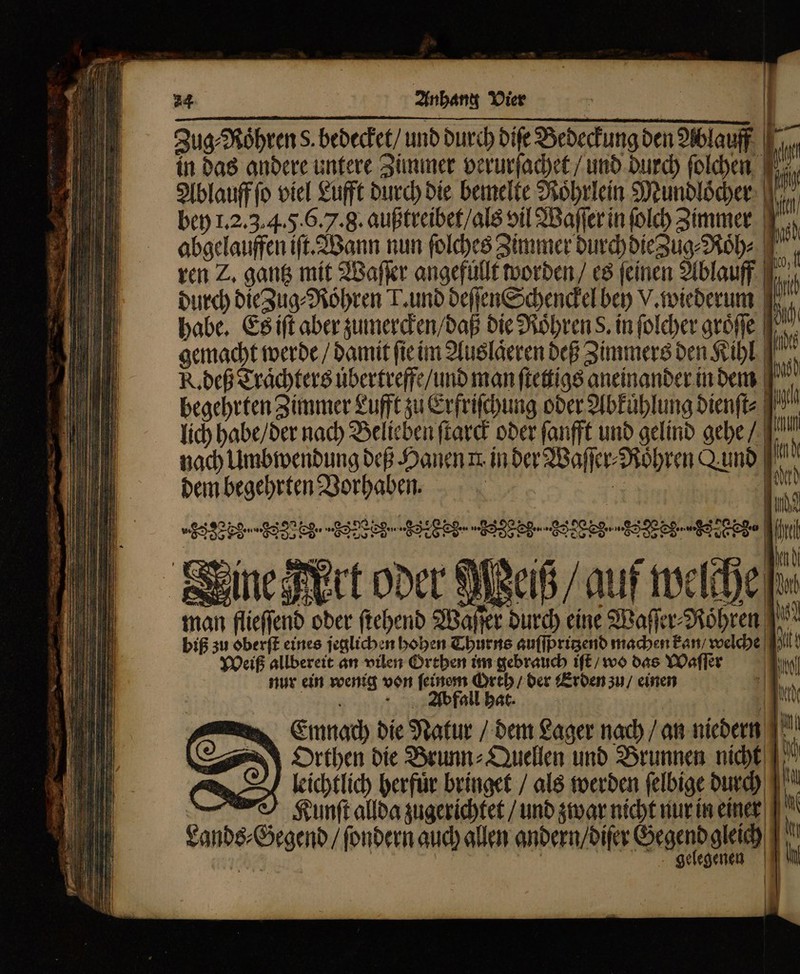 24 Anhang Vier
Zug-Röhren S. bedecket/ und durch dise Bedeckung den Ablauff
in das andere untere Zimmer verursachet / und durch solchen
Ablauff so viel Lufft durch die bemelte Röhrlein Mundlöcher
bey 1.2.3.4.5.6.7.8. außtreibet/als vil Wasser in solch Zimmer
abgelauffen ist. Wann nun solches Zimmer durch die Zug-Röh-
ren Z. gantz mit Wasser angefüllt worden / es seinen Ablauff
durch die Zug-Röhren T. und dessen Schenckel bey V. wiederum
habe. Es ist aber zumercken/daß die Röhren S. in solcher grösse
gemacht werde / damit sie im Ausläeren deß Zimmers den Kihl
R. deß Trächters übertreffe/und man stettigs aneinander in dem
begehrten Zimmer Lufft zu Erfrischung oder Abkühlung dienst-
lich habe/der nach Belieben starck oder sanfft und gelind gehe /
nach Umbwendung deß Hanen π. in der Wasser-Röhren Q. und
dem begehrten Vorhaben.
Eine Art oder Weiß / auf welche
man fliessend oder stehend Wasser durch eine Wasser-Röhren
biß zu oberst eines jeglichen hohen Thurns aufsspritzend machen kan/ welche
Weiß allbereit an vilen Orthen im gebrauch ist / wo das Wasser
nur ein wenig von seinem Orth / der Erden zu / einen
Abfall hat.
DEmnach die Natur / dem Lager nach / an niedern
Orthen die Brunn-Quellen und Brunnen nicht
leichtlich herfür bringet / als werden selbige durch
Kunst allda zugerichtet / und zwar nicht nur in einer
Lands-Gegend / sondern auch allen andern/diser Gegend gleich
gelegenen